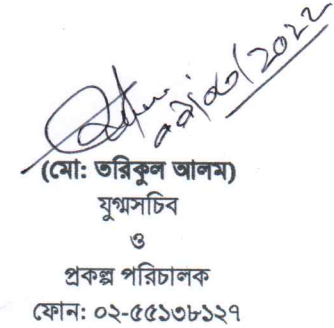 (মো: তরিকুল আলম)
যুগ্মসচিব
ও
প্রকল্প পরিচালক
ফোন: ০২-৫৫১৩৮১২৭